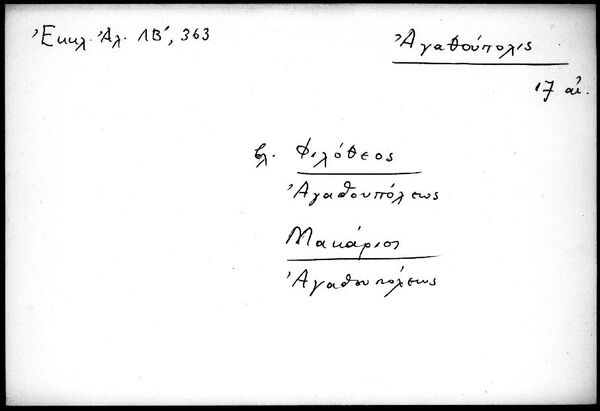 Ἐκκλ. Ἀλ. ΛΒ΄, 363
Ἀγαθούπολις
17 αἰ.
βλ. Φιλόθεος
Ἀγαθουπόλεως
Μακάριος
Ἀγαθουπόλεως